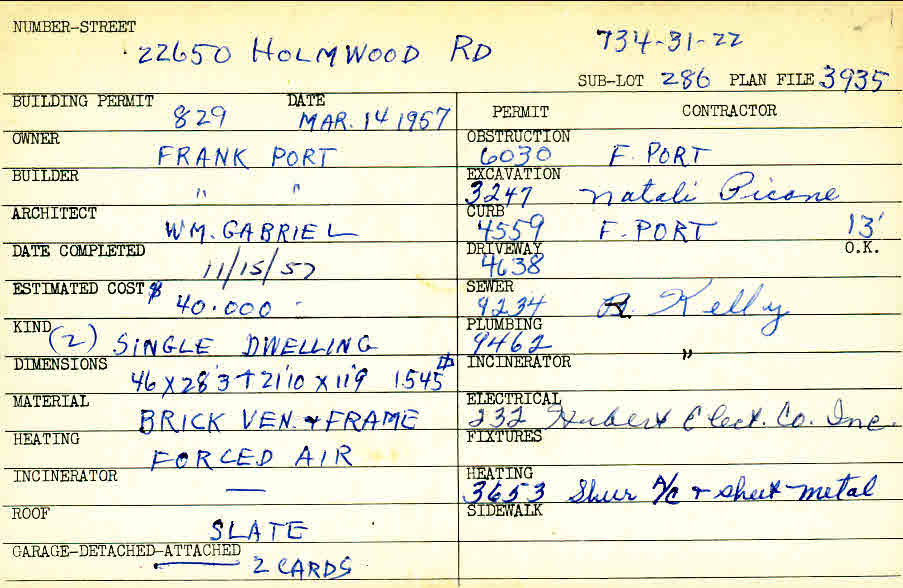 NUMBER-STREET
22650 HOLMWOOD RD 734-31-22
SUB-LOT 286 PLAN FILE 3935
BUILDING PERMIT 829 DATE MAR. 14 1957
OWNER FRANK PORT
BUILDER " "
ARCHITECT WM. GABRIEL
DATE COMPLETED 11/15/57
ESTIMATED COST $ 40.000 -
KIND (2) SINGLE DWELLING
DIMENSIONS 46 x 28'3 + 21'10 x 11'9 1545
MATERIAL BRICK VEN. + FRAME
HEATING FORCED AIR
INCINERATOR —
ROOF SLATE
GARAGE-DETACHED-ATTACHED 2 CARDS
PERMIT CONTRACTOR
OBSTRUCTION 6030 F. PORT
EXCAVATION 3247 Natali Picone
CURB 4559 F. PORT 13'
DRIVEWAY 4638 O.K.
SEWER 9234 R. Kelly
PLUMBING 9462 "
INCINERATOR
ELECTRICAL 232 Hubert Elect. Co. Inc.
FIXTURES
HEATING 3653 A/C + sheet metal
SIDEWALK